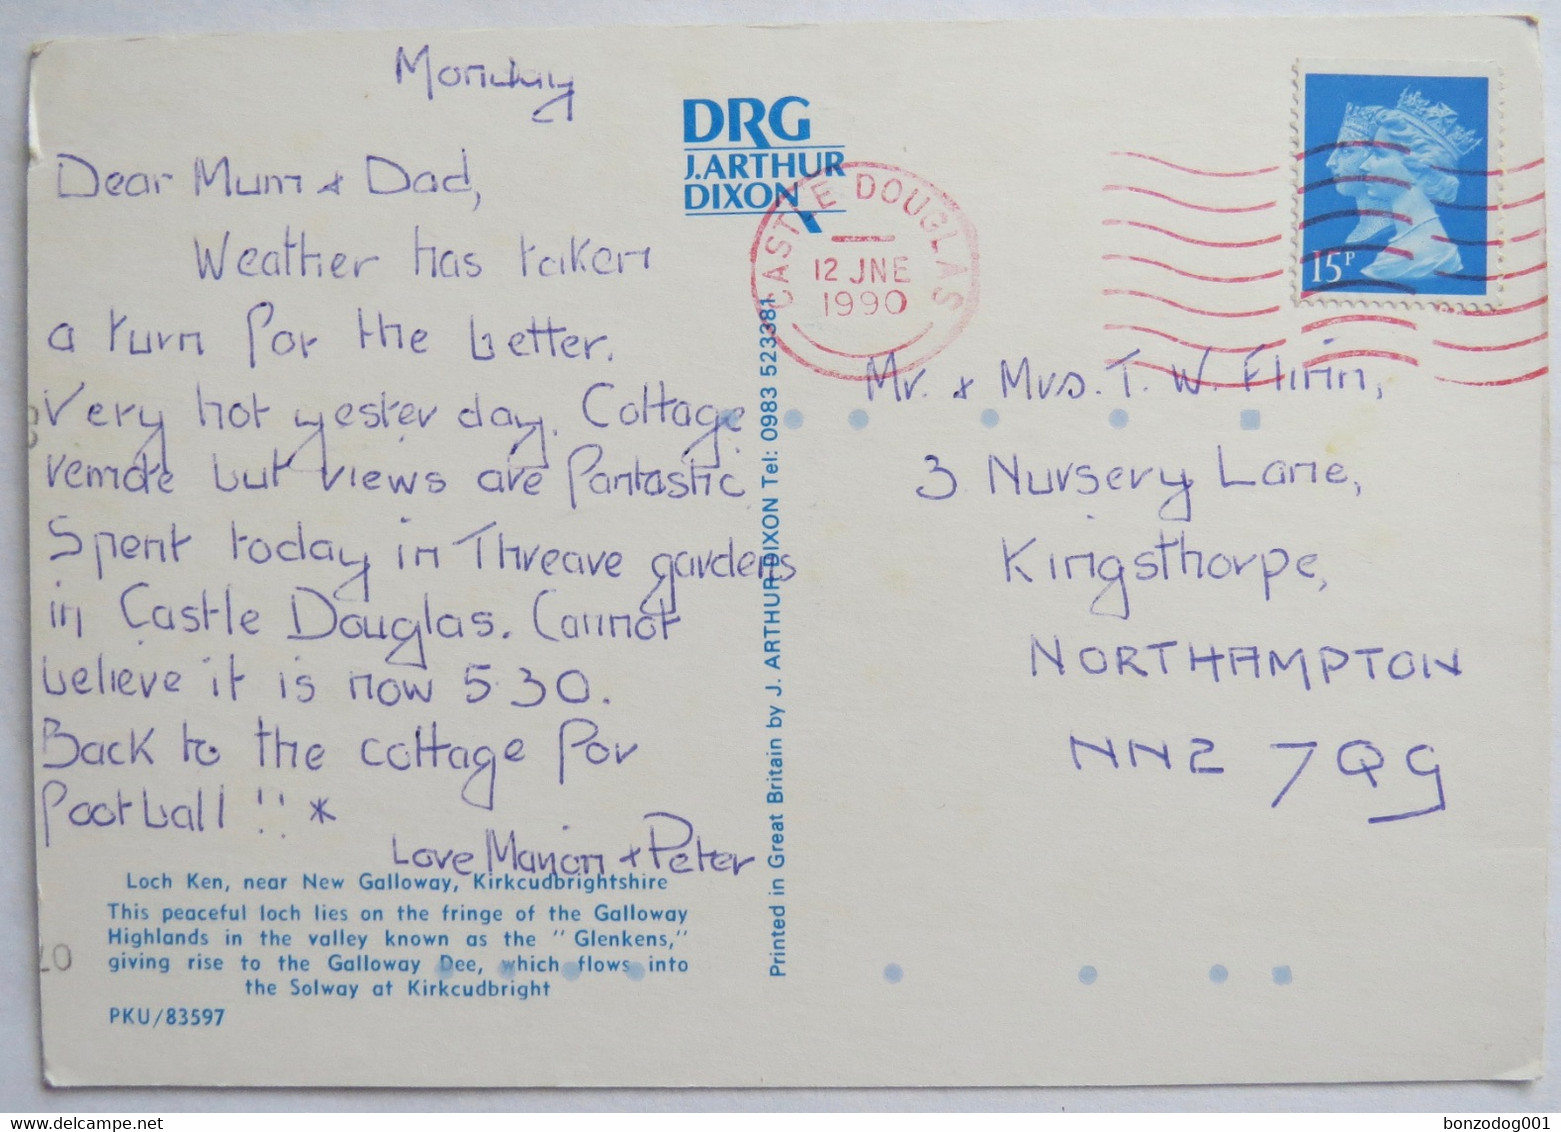 Monday
Dear Mum & Dad,
Weather has taken
a turn for the better.
Very hot yesterday. Cottage
remote but views are fantastic
Spent today in Threave gardens
in Castle Douglas. Cannot
believe it is now 5.30.
Back to the cottage for
football !! *
Love Marion & Peter
Loch Ken, near New Galloway, Kirkcudbrightshire
This peaceful loch lies on the fringe of the Galloway
Highlands in the valley known as the "Glenkens,"
giving rise to the Galloway Dee, which flows into
the Solway at Kirkcudbright
PKU/83597
DRG
J.ARTHUR
DIXON
Printed in Great Britain by J. ARTHUR DIXON Tel: 0983 523381
CASTLE DOUGLAS
12 JNE
1990
15P
Mr. & Mrs. T. W. Flinn,
3 Nursery Lane,
Kingsthorpe,
NORTHAMPTON
NN2 7QG
bonzodog001